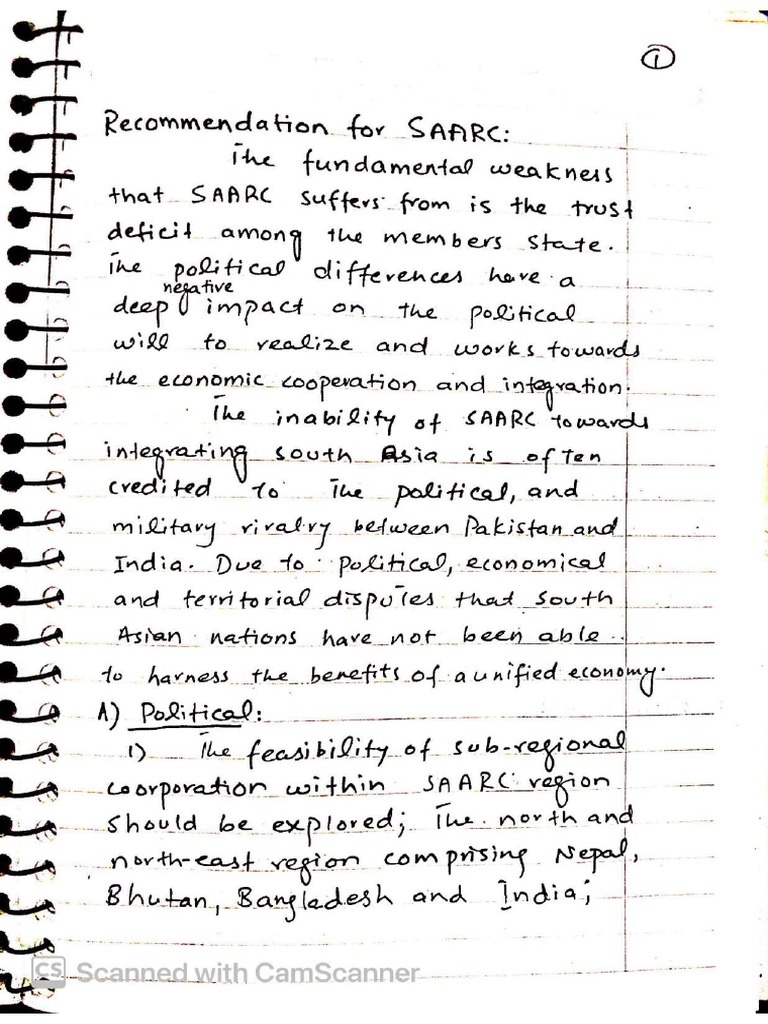 ①
Recommendation for SAARC:
The fundamental weakness
that SAARC suffers from is the trust
deficit among the members state.
The political differences have a
negative
deep impact on the political
will to realize and works towards
the economic cooperation and integration.
The inability of SAARC towards
integrating south Asia is often
credited to the political, and
military rivalry between Pakistan and
India. Due to political, economical
and territorial disputes that south
Asian nations have not been able
to harness the benefits of a unified economy.
A) Political:
1) The feasibility of sub-regional
coorporation within SAARC region
should be explored; The north and
north-east region comprising Nepal,
Bhutan, Bangladesh and India;
CS Scanned with CamScanner